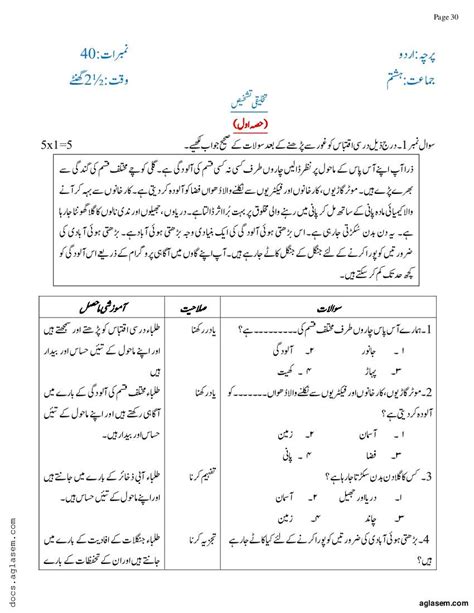 Page 30
پرچہ: اردو
نمبرات: 40
جماعت: ہشتم
وقت: 2½ گھنٹے
تخلیقی تشخیص
(حصہ اول)
سوال نمبر 1۔ درج ذیل درسی اقتباس کو غور سے پڑھنے کے بعد سوالات کے صحیح جواب لکھیے۔ 5x1=5
ذرا آپ اپنے آس پاس کے ماحول پر نظر ڈالیں چاروں طرف کسی نہ کسی قسم کی آلودگی ہے۔ گلی کوچے مختلف قسم کی گندگی سے
بھرے پڑے ہیں۔ موٹر گاڑیوں، کارخانوں اور فیکٹریوں سے نکلنے والا دھواں فضا کو آلودہ کر دیتا ہے۔ کارخانوں سے بہہ کر آنے
والا کیمیائی مادہ پانی کے ساتھ مل کر پانی میں رہنے والی مخلوق پر بہت بُرا اثر ڈالتا ہے۔ دریاؤں، جھیلوں اور ندی نالوں کا گلا گھونٹا جا رہا
ہے۔ یہ دن بدن سکڑتی جا رہی ہے۔ اس آلودگی کی ایک بنیادی وجہ بڑھتی ہوئی آبادی ہے۔ بڑھتی ہوئی آبادی کی
ضرورتیں کو پورا کرنے کے لئے جنگل کے جنگل کاٹے جا رہے ہیں۔ آپ اپنے گاوں میں آگاہی پروگرام کے ذریعے اس آلودگی کو
کچھ حد تک کم کر سکتے ہیں۔
سوالات صلاحیت آموزشی ماحصل
1۔ ہمارے آس پاس چاروں طرف مختلف قسم کی ـــــــــ ہے؟ یاد رکھنا طلباء درسی اقتباس کو پڑھتے اور سمجھتے ہیں
۱۔ جانور ۲۔ آلودگی اور اپنے ماحول کے تئیں حساس اور بیدار
۳۔ پہاڑ ۴۔ کھیت ہیں۔
2۔ موٹر گاڑیوں، کارخانوں اور فیکٹریوں سے نکلنے والا دھواں ـــــــــ کو یاد رکھنا طلباء مختلف قسم کی آلودگی کے بارے میں
آلودہ کر دیتی ہے؟ آگاہی رکھتے ہیں اور اپنے ماحول کے تئیں
۱۔ آسمان ۲۔ زمین حساس اور بیدار ہیں۔
۳۔ فضا ۴۔ پانی
3۔ کس کا گلا دن بدن سکڑتا جا رہا ہے؟ تفہیم کرنا طلباء آبی ذخائر کے بارے میں جانتے ہیں
۱۔ دریا اور جھیل ۲۔ آسمان اور اپنے ماحول کے تئیں حساس ہیں۔
۳۔ چاند ۴۔ زمین
4۔ بڑھتی ہوئی آبادی کی ضرورتیں کو پورا کرنے کے لئے کیا کاٹے جا رہے تجزیہ کرنا طلباء جنگلات کے افادیت کے بارے میں
ہے؟ جانتے ہیں اور ان کے تحفظات کے بارے
docs.aglasem.com
aglasem.com